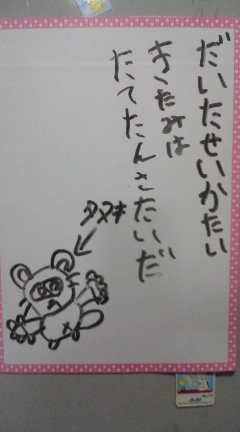 だいたせいかたい
きたみは
たてたんさたいだ
タヌキ